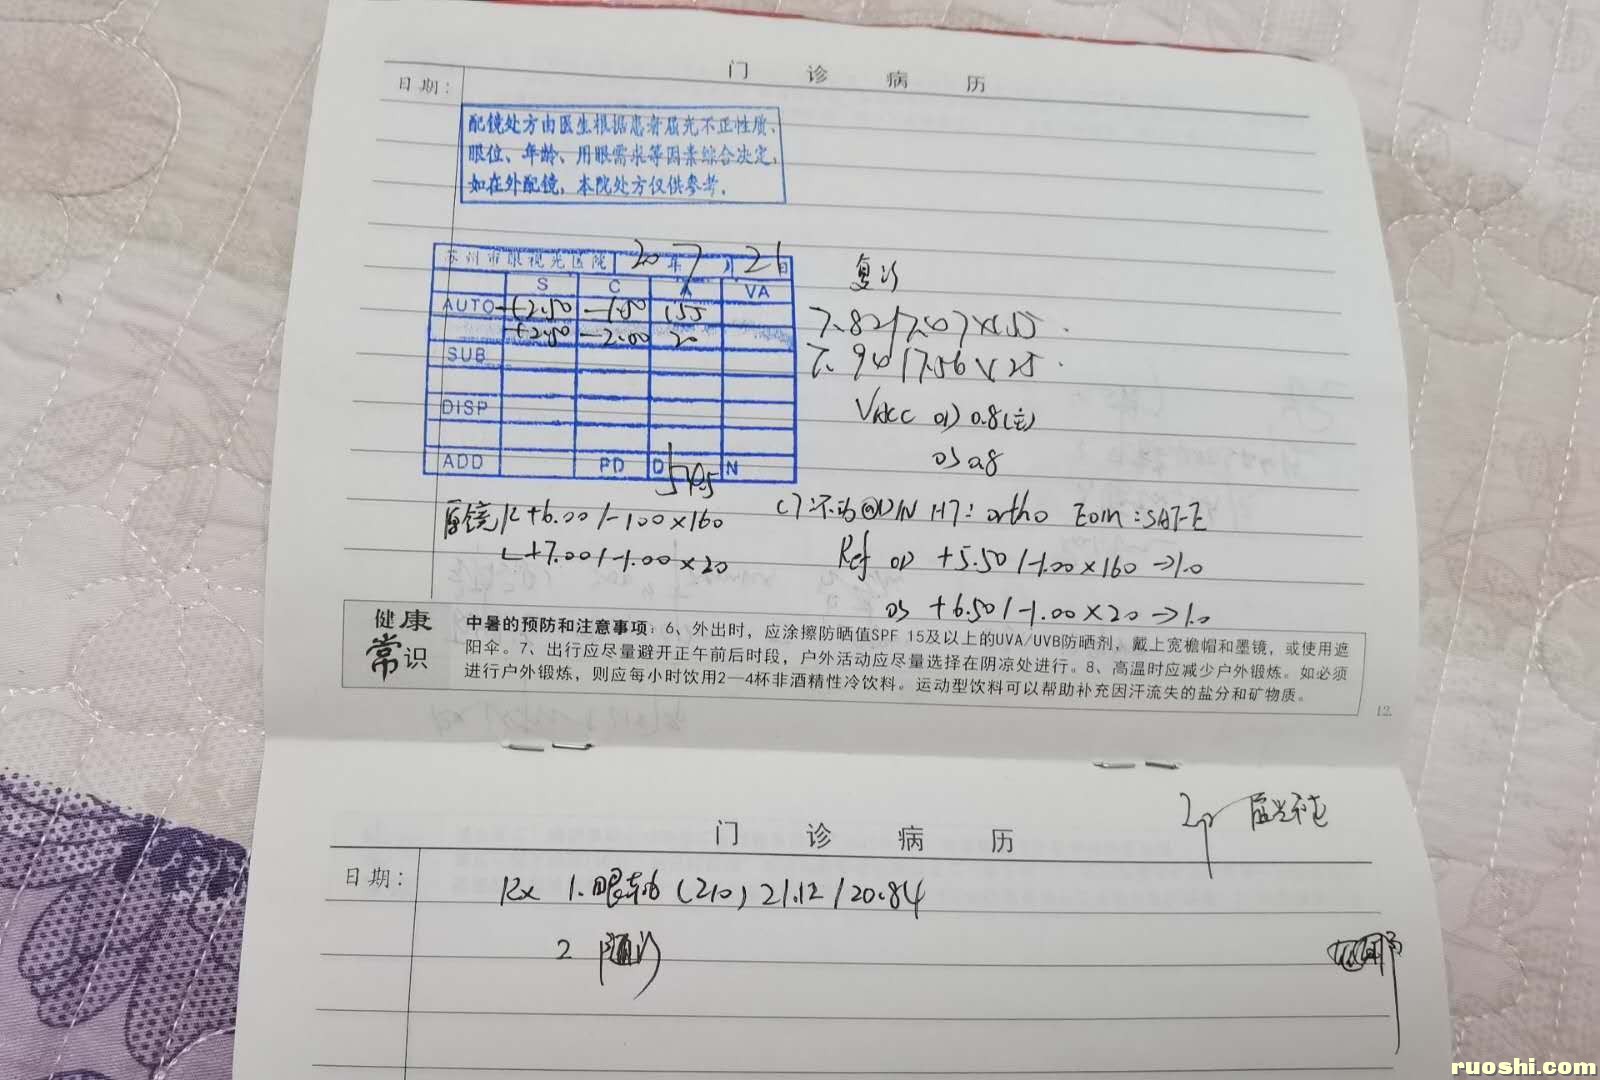 门 诊 病 历
日期：
配镜处方由医生根据患者屈光不正性质、
眼位、年龄、用眼需求等因素综合决定,
如在外配镜，本院处方仅供参考.
苏州市眼视光医院 20年 7 月 26日
S C A VA
AUTO +2.50 -1.50 155
+2.50 -2.00 20
SUB
DISP
ADD PD D N
复诊
7.82/7.67×155.
7.90/7.56×25.
VAcc OD 0.8(主)
OS 0.8
原镜 R +6.00/-1.00×160
L +7.00/-1.00×20
CT:不动@D/N HT: ortho Eom: SAFE
Ref OD +5.50/-1.00×160→1.0
OS +6.50/-1.00×20→1.0
健康
常识
中暑的预防和注意事项：6、外出时，应涂擦防晒值SPF 15及以上的UVA/UVB防晒剂，戴上宽檐帽和墨镜，或使用遮
阳伞。7、出行应尽量避开正午前后时段，户外活动应尽量选择在阴凉处进行。8、高温时应减少户外锻炼。如必须
进行户外锻炼，则应每小时饮用2—4杯非酒精性冷饮料。运动型饮料可以帮助补充因汗流失的盐分和矿物质。
12.
门 诊 病 历
屈光不正
日期：
Rx 1.眼轴 (210) 21.12/20.84
2 随诊
ruoshi.com